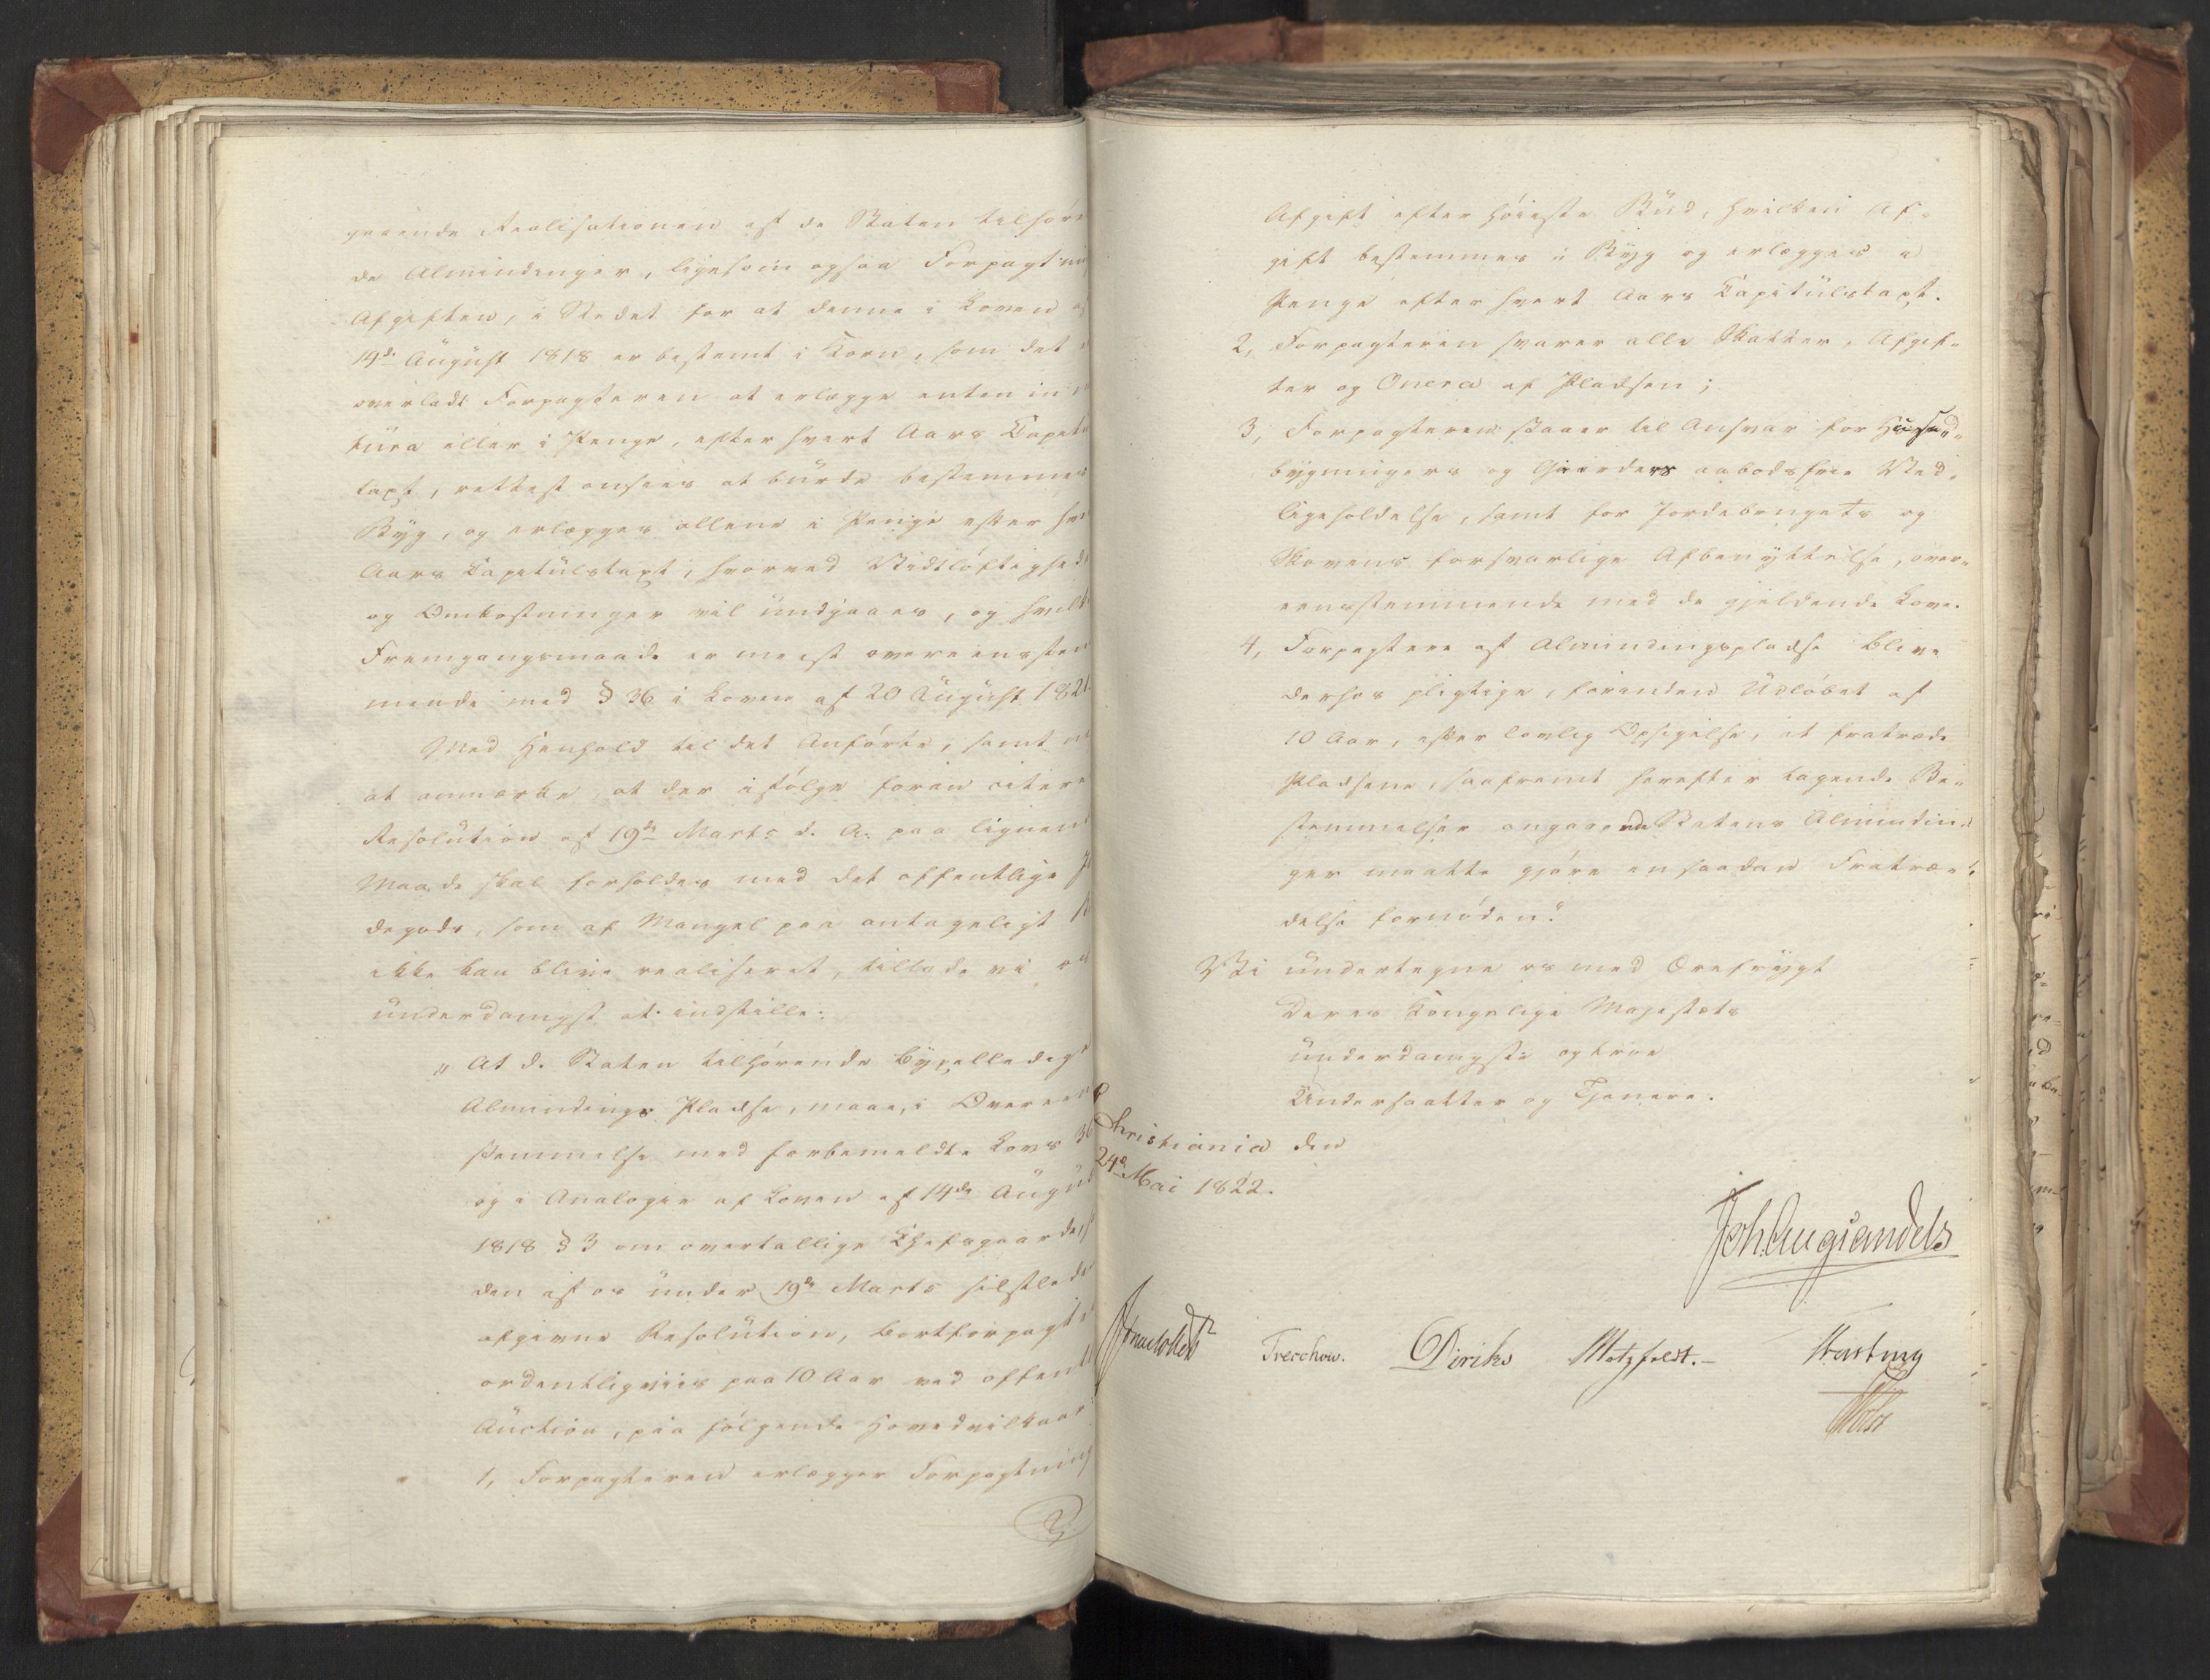 gaaende Realisationen af de Staten tilhøren
de Almindinger, ligesom ogsaa Forpagtnings
Afgiften, i Stedet for at denne i Loven af
14de August 1818 er bestemt i Korn, som det er
overladt Forpagteren at erlægge enten in na
tura eller i Penge, efter hvert Aars Capitels
taxt, rettest ansees at burde bestemmes i
Byg, og erlægges allene i Penge efter hver
Aars Capitulstaxt, hvorved Vidtløftigheder
og Omkostninger vil undgaaes, og hvilken
Fremgangsmaade er meest overeensstem
mende med § 36 i Loven af 20 August 1821.
Med Henhold til det Anførte, samt
at anmærke, at der ifølge foran citere
Resolution af 19de Marts d. A. paa lignende
Maade skal forholdes med det offentlige Jor
degods, som af Mangel paa antageligt Bud
ikke kan blive realiseret, tillade vi os
underdanigst at indstille:
"At de Staten tilhørende byxelledige
Almindings Pladse, maae, i Overeens
stemmelse med forbemeldte Lovs 36
og i Analogie af Loven af 14de August
1818 § 3 om overtallige Chefsgaarde,
den af os under 19de Marts sidstleden
afgivne Resolution, bortforpagtes
ordentligviis paa 10 Aar ved offentlig
Auction, paa følgende Hovedvilkaar:
1, Forpagteren erlægger Forpagtnings
Afgift efter høieste Bud, hvilken Af-
gift bestemmes i Byg og erlægges i
Penge efter hvert Aars Capitulstaxt.
2, Forpagteren svarer alle Skatter, Afgif-
ter og Onera af Pladsen;
3, Forpagteren staaer til Ansvar for Huse
bygningers og Gierders aabodsfrie Ved-
ligeholdelse, samt for Jordebrugets og
Skovens forsvarlige Afbenyttelse, over-
eensstemmende med de gjeldende Love.
4, Forpagtere af Almindingspladse blive
derhos pligtige, forinden Udløbet af
10 Aar, efter lovlig Opsigelse, at fratræde
Pladsene, saafremt herefter tagende Be-
stemmelser angaaende Statens Almindin-
ger maatte gjøre en saadan Fratræ-
delse fornøden."
Vi undertegne os med Ærefrygt
Deres Kongelige Majestæts
underdanigste og troe
Undersaatter og Tjenere.
Christiania den
24de Mai 1822.
Joh. Aug Sandels
Treschow. Diriks Motzfeldt.- Hasting
Holst